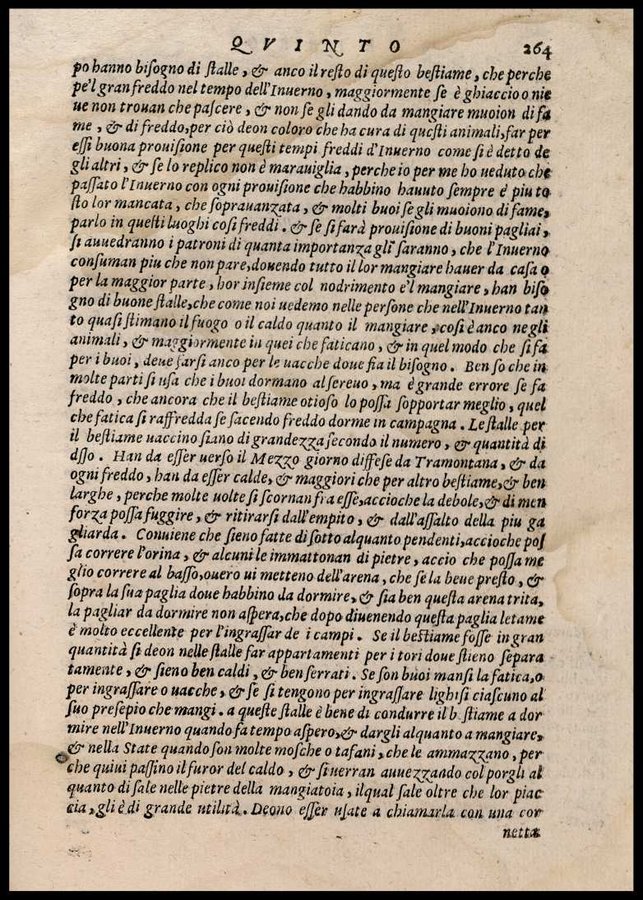 QVINTO 264
po hanno bisogno di stalle, & anco il resto di questo bestiame, che perche
pe'l gran freddo nel tempo dell'Inuerno, maggiormente se è ghiaccio o nie
ue non trouan che pascere, & non se gli dando da mangiare muoion di fa
me, & di freddo, per ciò deon coloro che ha cura di questi animali, far per
essi buona prouisione per questi tempi freddi d'Inuerno come si è detto de
gli altri, & se lo replico non è marauiglia, perche io per me ho ueduto che
passato l'Inuerno con ogni prouisione che habbino hauuto sempre è piu to
sto lor mancata, che soprauanzata, & molti buoi se gli muoiono di fame,
parlo in questi luoghi cosi freddi. & se si farà prouisione di buoni pagliai,
si auuedranno i patroni di quanta importanza gli saranno, che l'Inuerno
consuman piu che non pare, douendo tutto il lor mangiare hauer da casa o
per la maggior parte, hor insieme col nodrimento e'l mangiare, han biso
gno di buone stalle, che come noi uedemo nelle persone che nell'Inuerno tan
to quasi stimano il fuogo o il caldo quanto il mangiare, cosi è anco negli
animali, & maggiormente in quei che faticano, & in quel modo che si fa
per i buoi, deue farsi anco per le uacche doue fia il bisogno. Ben so che in
molte parti si usa che i buoi dormano al sereuo, ma è grande errore se fa
freddo, che ancora che il bestiame otioso lo possa sopportar meglio, quel
che fatica si raffredda se sacendo freddo dorme in campagna. Le stalle per
il bestiame uaccino siano di grandezza secondo il numero, & quantità di
dsso. Han da esser uerso il Mezzo giorno diffese da Tramontana, & da
ogni freddo, han da esser calde, & maggiori che per altro bestiame, & ben
larghe, perche molte uolte si scornan fra esse, accioche la debole, & di men
forza possa fuggire, & ritirarsi dall'empito, & dall'assalto della piu ga
gliarda. Conuiene che sieno fatte di sotto alquanto pendenti, accioche pos
sa correre l'orina, & alcuni le immattonan di pietre, accio che possa me
glio correre al basso, ouero ui metteno dell'arena, che se la beue presto, &
sopra la sua paglia doue habbino da dormire, & sia ben questa arena trita,
la pagliar da dormire non aspera, che dopo diuenendo questa paglia letame
è molto eccellente per l'ingrassar de i campi. Se il bestiame fosse in gran
quantità si deon nelle stalle far appartamenti per i tori doue stieno separa
tamente, & sieno ben caldi, & ben serrati. Se son buoi mansi la fatica, o
per ingrassare o uacche, & se si tengono per ingrassare lighisi ciascuno al
suo presepio che mangi. a queste stalle è bene di condurre il bestiame a dor
mire nell'Inuerno quando fa tempo aspero, & dargli alquanto a mangiare,
& nella State quando son molte mosche o tafani, che le ammazzano, per
che quiui passino il furor del caldo, & si uerran auuezzando col porgli al
quanto di sale nelle pietre della mangiatoia, il qual sale oltre che lor piac
cia, gli è di grande utilità. Deono esser usate a chiamarla con una cor
netta